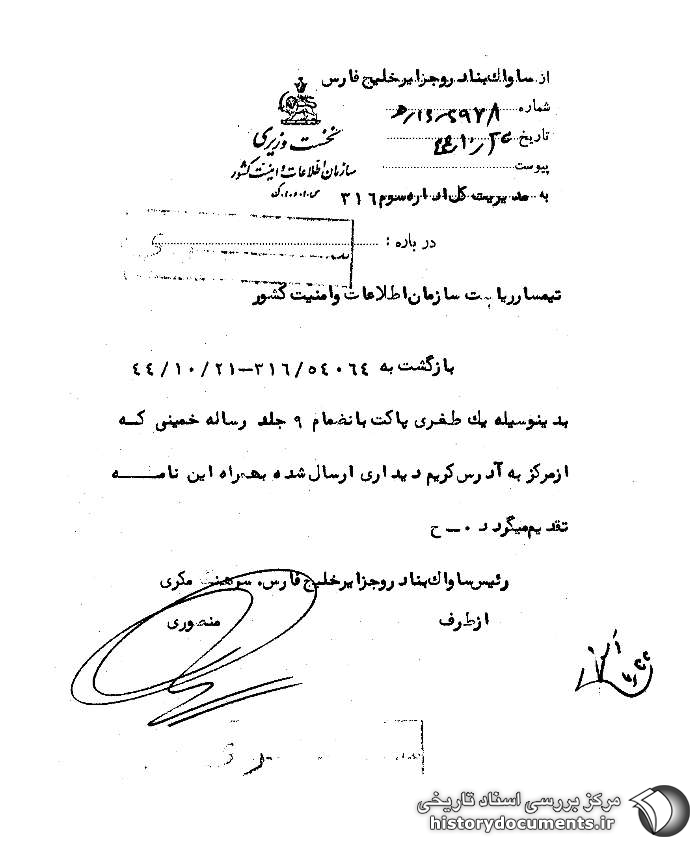 از ساواك بنادر وجزاير خليج فارس
شماره
تاريخ
پيوست
به مديريت كل اداره سوم ۳۱۶
نخست وزيرى
سازمان اطلاعات و امنيت كشور
در باره :
تيمسار رياست سازمان اطلاعات وامنيت كشور
بازگشت به ۳۱۶/۵٤۰٦٤-٤٤/۱۰/۲۱
بدينوسيله يك طغرى پاكت بانضمام ۹ جلد رساله خمينى كه
ازمركز به آدرس كريم ديدارى ارسال شده بهمراه اين نامه
تقديم ميگردد ۰ ــ ح
رئيس ساواك بنادر وجزاير خليج فارس. سرهنگ مكرى
ازطرف
منصورى
مرکز بررسی اسناد تاریخی
historydocuments.ir